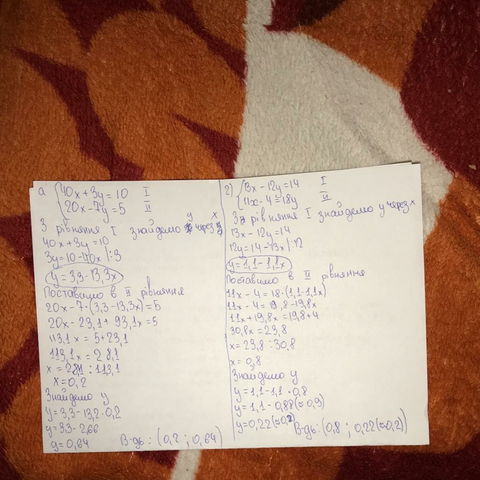 а {40x + 3y = 10 I
{20x - 7y = 5 II
З рівняння I знайдемо y через x
40x + 3y = 10
3y = 10 - 40x |:3
y = 3,3 - 13,3x
Поставимо в II рівняння
20x - 7·(3,3 - 13,3x) = 5
20x - 23,1 + 93,1x = 5
113,1x = 5 + 23,1
113,1x = 28,1
x = 28,1 : 113,1
x = 0,2
Знайдемо y
y = 3,3 - 13,2·0,2
y = 3,3 - 2,66
y = 0,64
В-дь: (0,2 ; 0,64)
г) {13x - 12y = 14 I
{11x - 4 = 18y II
З рівняння I знайдемо y через x
13x - 12y = 14
12y = 14 - 13x |:12
y = 1,1 - 1,1x
Поставимо в II рівняння
11x - 4 = 18·(1,1 - 1,1x)
11x - 4 = 19,8 - 19,8x
11x + 19,8x = 19,8 + 4
30,8x = 23,8
x = 23,8 : 30,8
x = 0,8
Знайдемо y
y = 1,1 - 1,1·0,8
y = 1,1 - 0,88 (≈0,9)
y = 0,22 (≈0,2)
В-дь: (0,8 ; 0,22 (≈0,2))